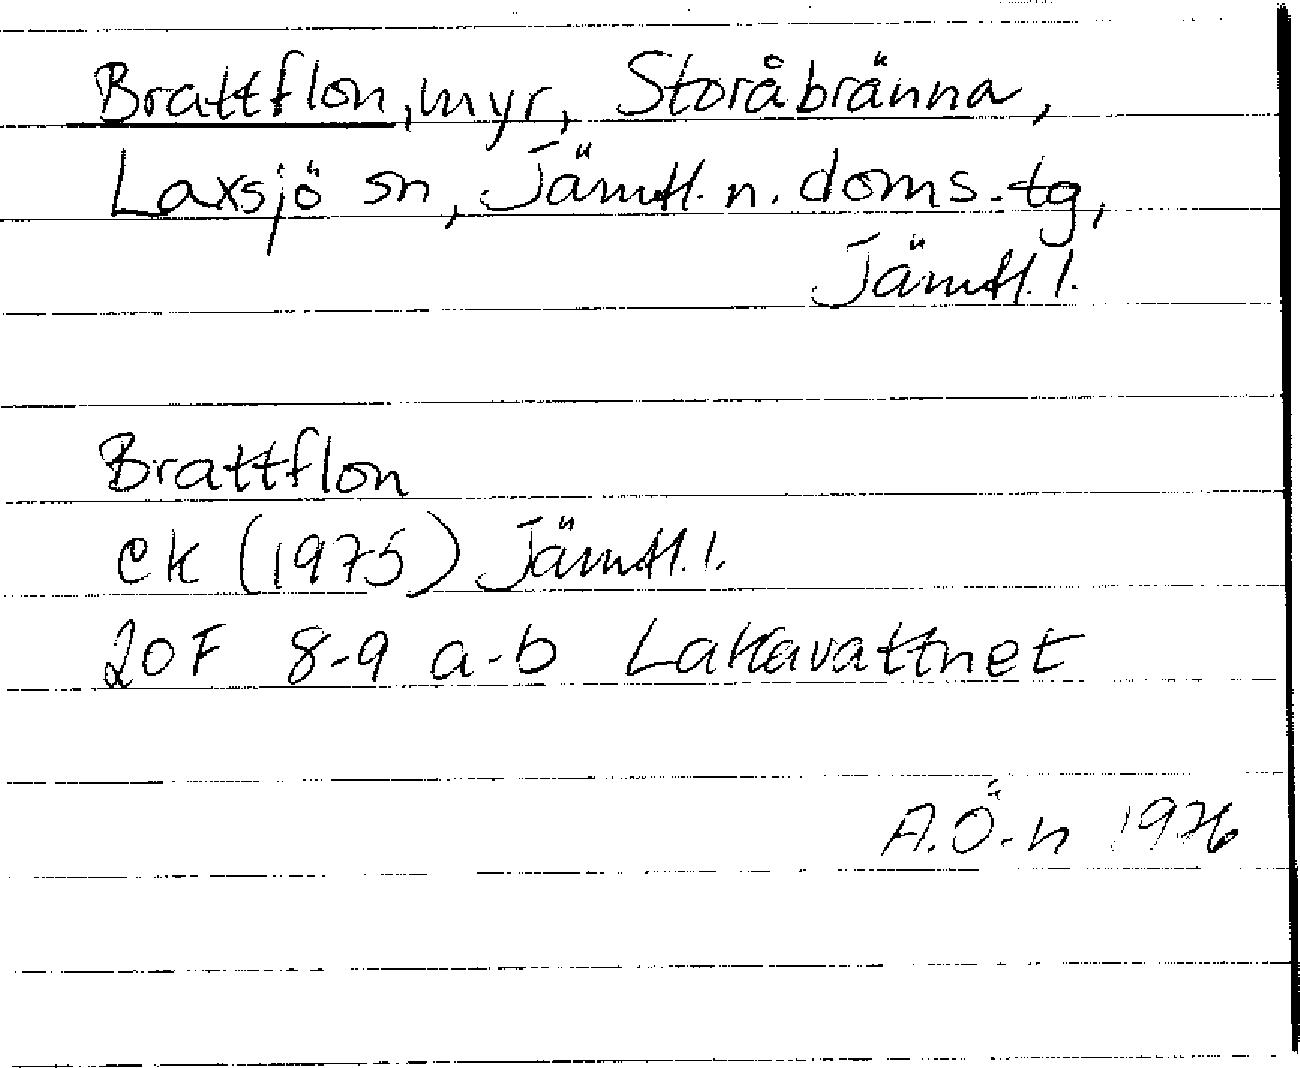 Brattflon, myr, Storåbränna,
Laxsjö sn, Jämtl. n. doms. tg,
Jämtl. l.
Brattflon
ek (1975) Jämtl. l.
20F 8-9 a-b Lakavattnet
A. Ö-n 1976